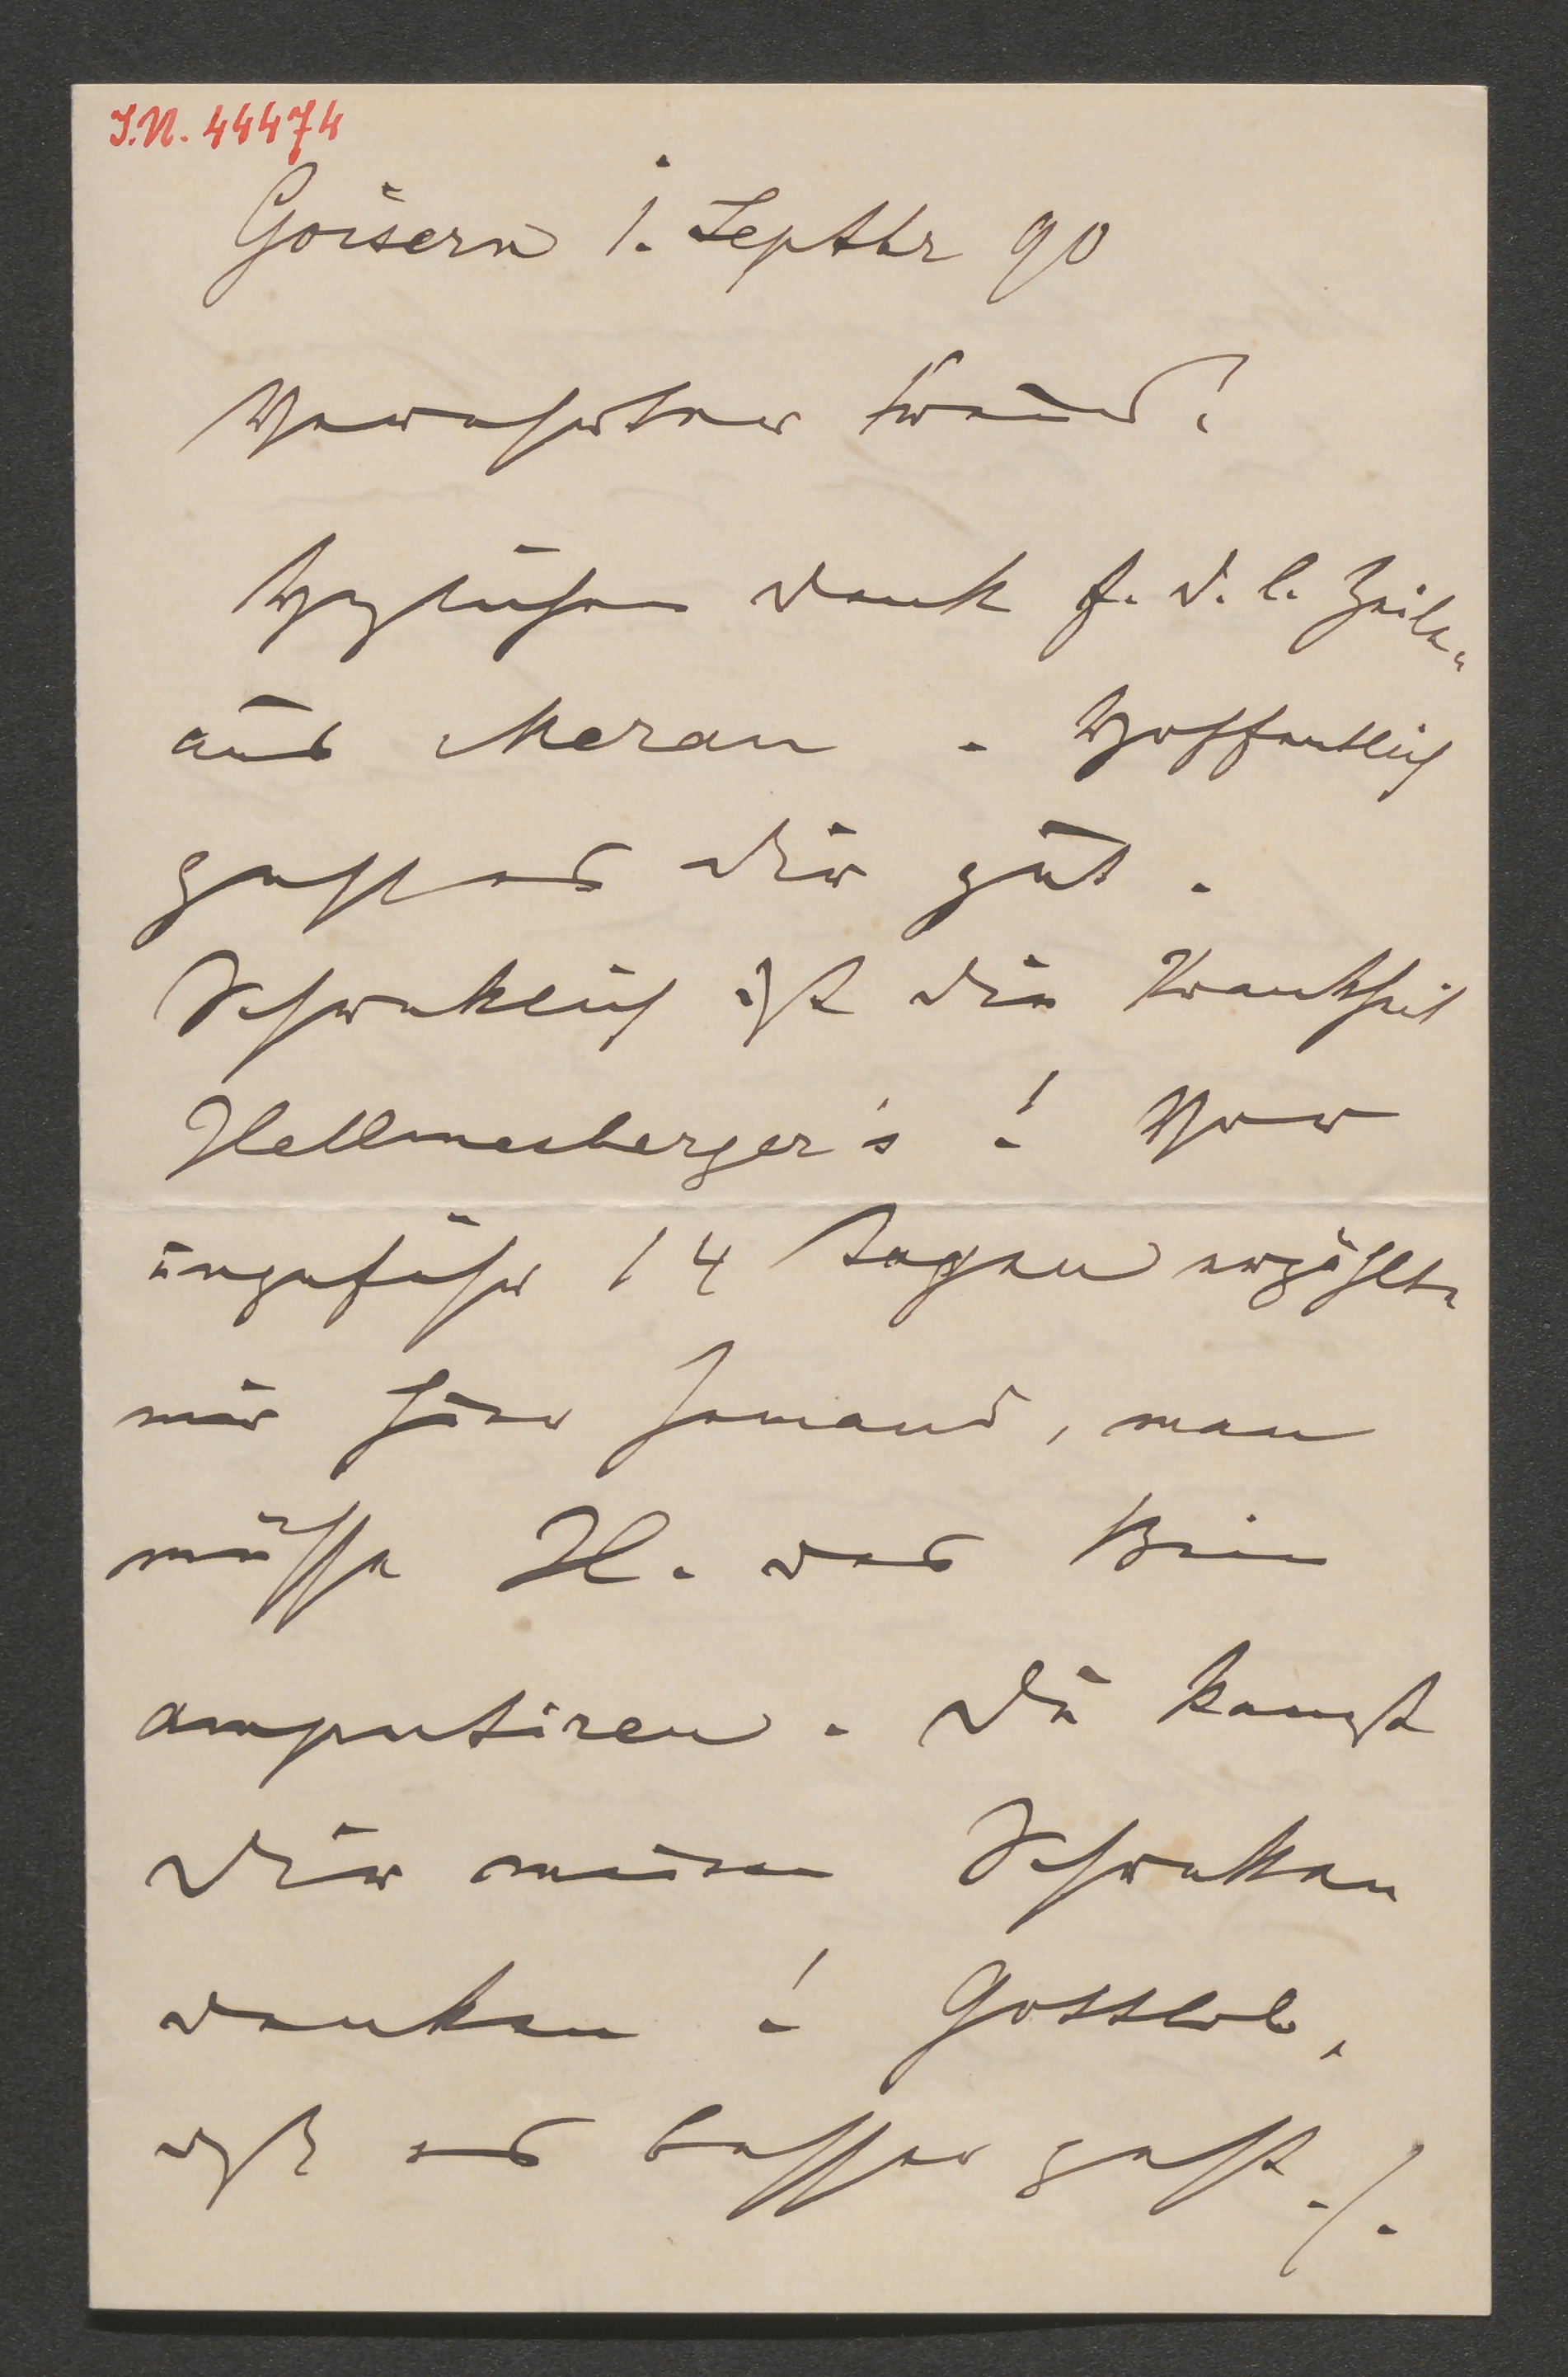 I.N. 44474
Goisern 1. Septbr 90
Verehrter Freund!
Herzlichen Dank f. d. l. Zeilen
aus Meran. Hoffentlich
geht es Dir gut.
Schreklich ist die Krankheit
Hellmesberger's! Vor
ungefähr 14 Tagen erzählte
mir hier Jemand, man
müsse H. das Bein
amputiren. Du kanst
Dir meinen Schreken
denken! Gottlob,
dß es besser geht ./.